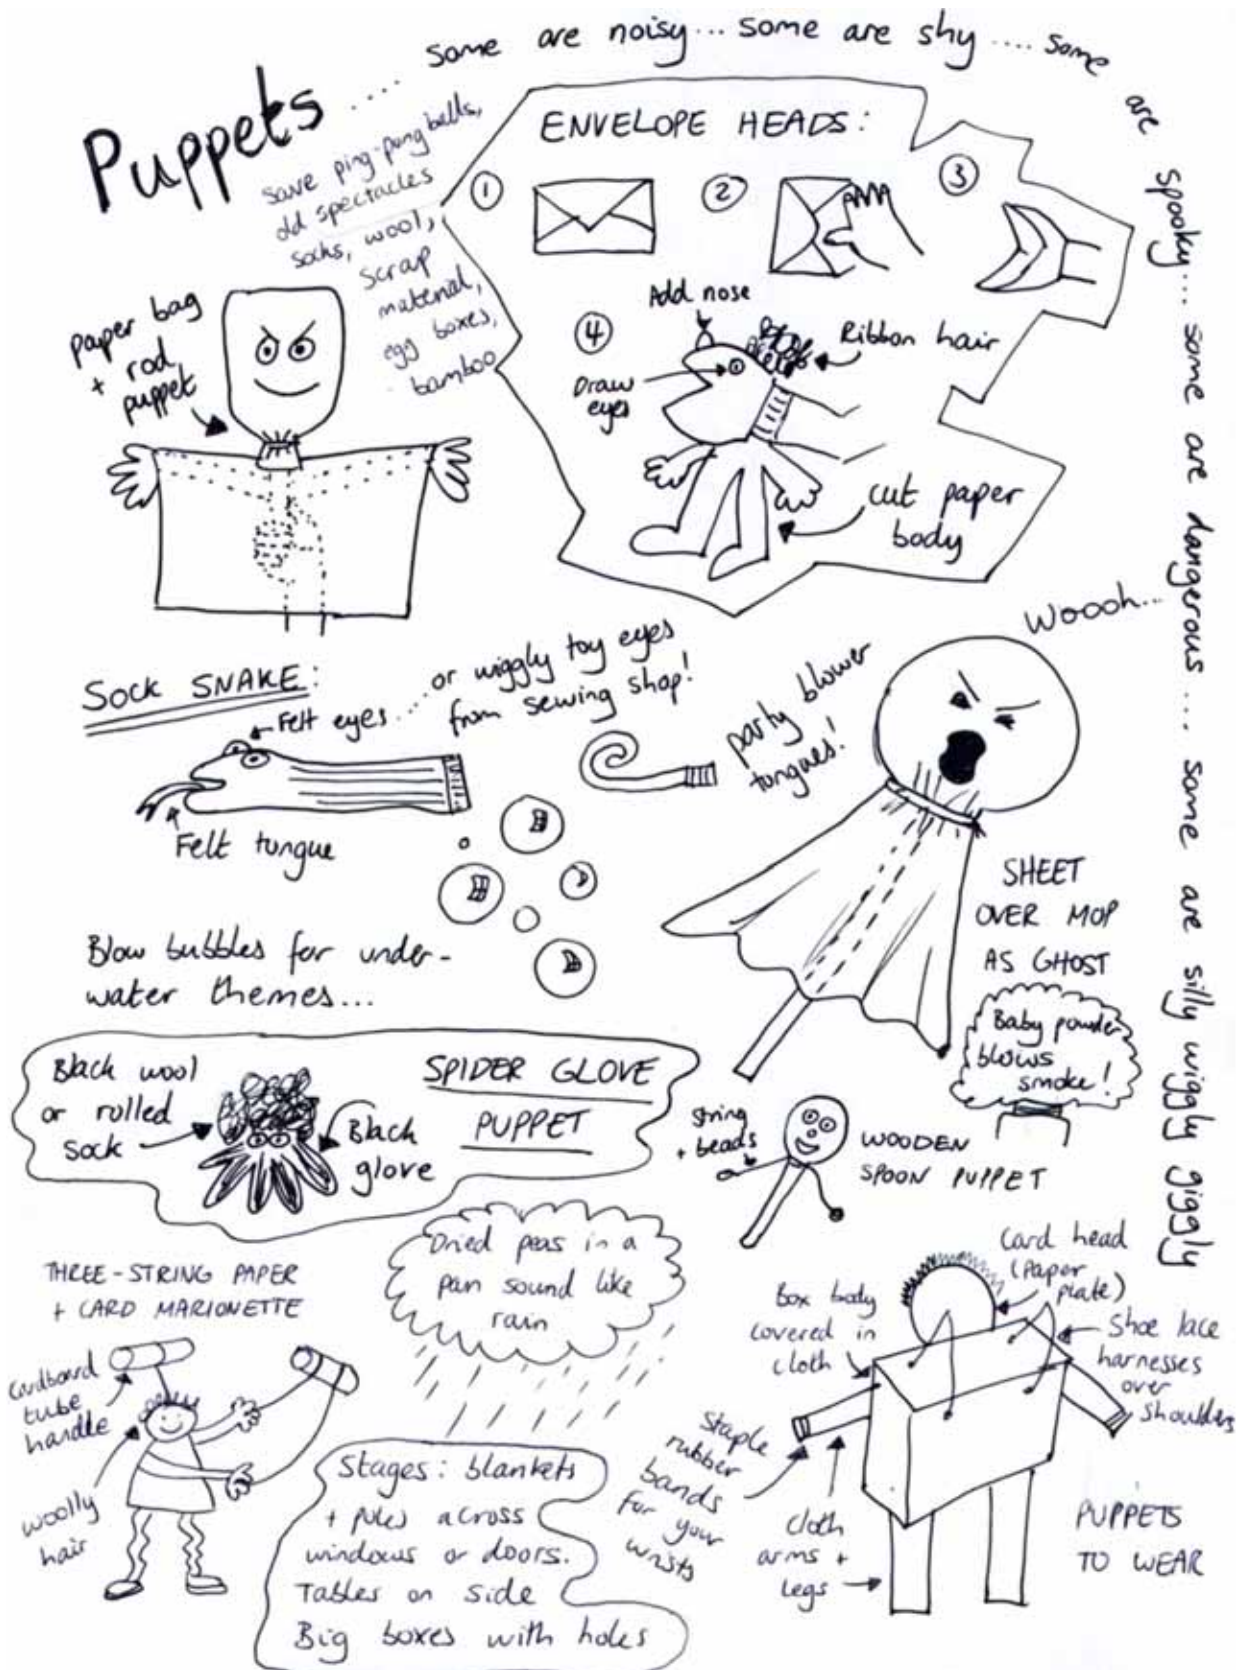 Puppets ..... some are noisy... some are shy .... some are spooky.... some are dangerous .... some are silly wiggly giggly
save ping-pong balls,
old spectacles
socks, wool,
scrap
material,
egg boxes,
bamboo
paper bag
+ rod
puppet
ENVELOPE HEADS:
1
2
3
4
Add nose
Ribbon hair
Draw
eyes
cut paper
body
Woooh...
SOCK SNAKE:
Felt eyes ..... or wiggly toy eyes
from sewing shop!
Felt tongue
party blower
tongues!
SHEET
OVER MOP
AS GHOST
Blow bubbles for under-
water themes...
Baby powder
blows
smoke!
SPIDER GLOVE
PUPPET
Black wool
or rolled
sock
Black
glove
string
+ beads
WOODEN
SPOON PUPPET
Dried peas in a
pan sound like
rain
THREE-STRING PAPER
+ CARD MARIONETTE
cardboard
tube
handle
woolly
hair
Stages: blankets
+ poles across
windows or doors.
Tables on side
Big boxes with holes
Card head
(paper
plate)
Box body
covered in
cloth
Shoe lace
harnesses
over
shoulders
Staple
rubber
bands
for your
wrists
cloth
arms +
legs
PUPPETS
TO WEAR